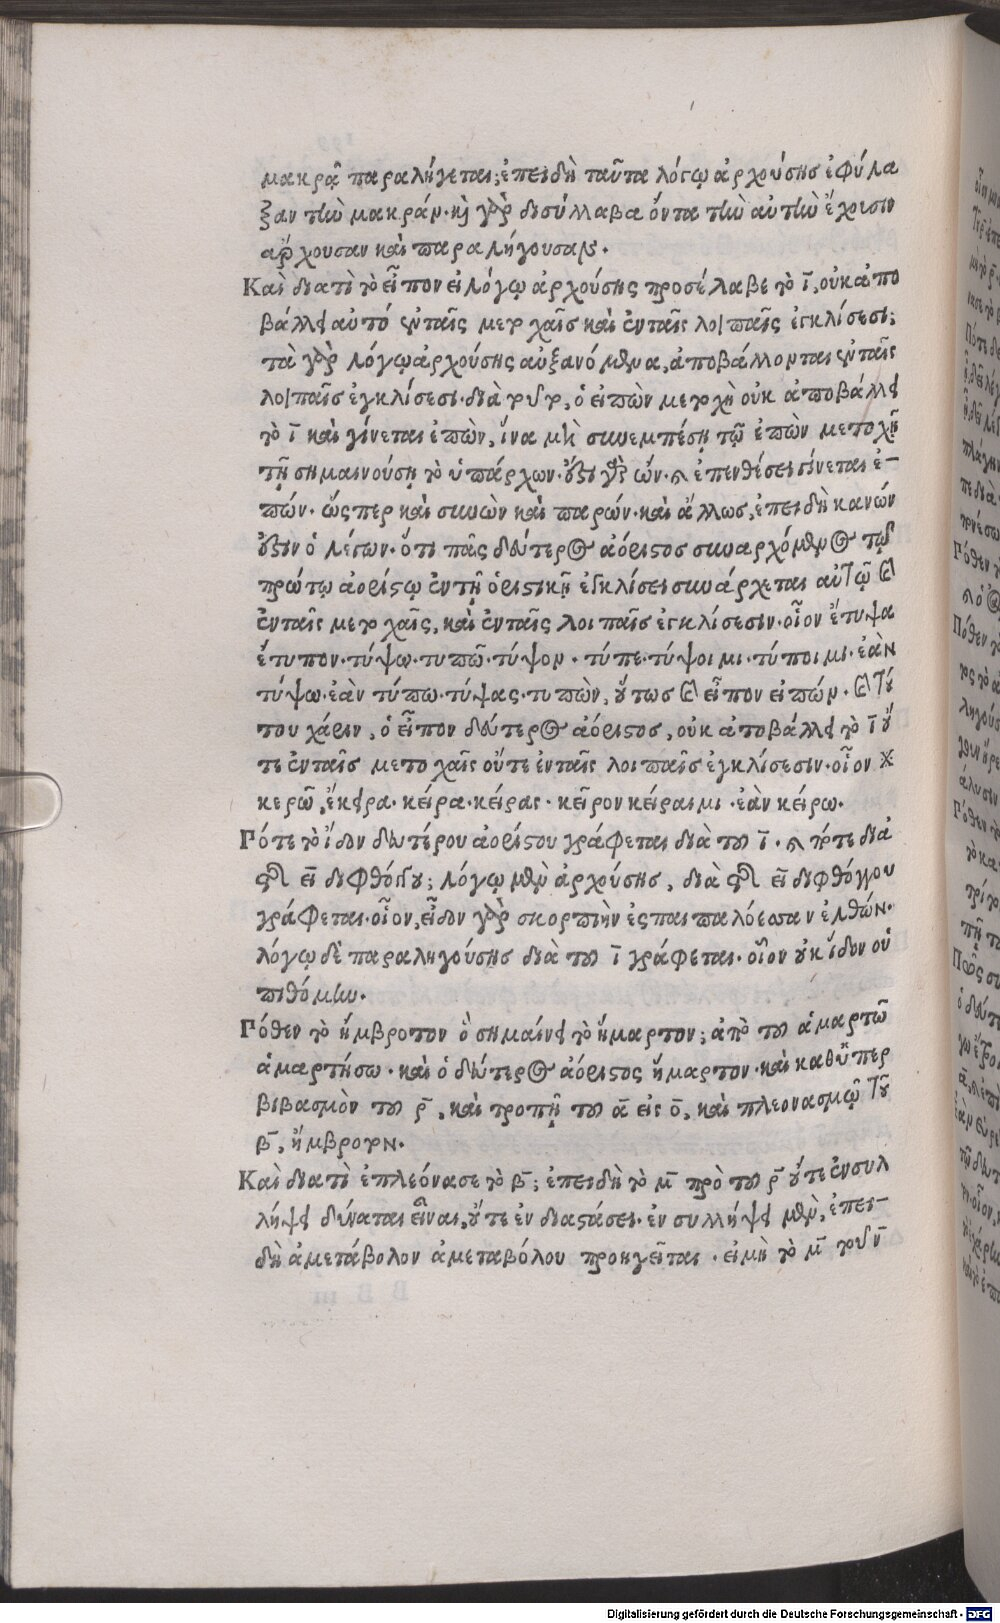 μακρᾶ παραλήγεται; ἐπειδὴ ταῦτα λόγῳ ἀρχούσης ἐφύλα
ξαν τὴν μακράν· καὶ γὰρ δισύλλαβα ὄντα τὴν αὐτὴν ἔχουσιν
ἄρχουσαν καὶ παραλήγουσαν.
Καὶ διατί τὸ εἶπον εἰ λόγῳ ἀρχούσης προσέλαβε τὸ ῑ, οὐκ ἀπο
βάλλει αὐτό ἐν ταῖς μετοχαῖς καὶ ἐν ταῖς λοιπαῖς ἐγκλίσεσι;
τὰ γὰρ λόγῳ ἀρχούσης αὐξανόμενα, ἀποβάλλονται ἐν ταῖς
λοιπαῖς ἐγκλίσεσι· διὰ τοῦτο, ὁ εἰπὼν μετοχὴ οὐκ ἀποβάλλει
τὸ ῑ καὶ γίνεται ἐπὼν, ἵνα μὴ συνεμπέσῃ τῷ ἐπὼν μετοχῇ
τῇ σημαινούσῃ τὸ ὑπάρχων· ἔστι γὰρ ὤν· καὶ ἐπενθέσει γίνεται ἐ-
πών· ὥσπερ καὶ συνὼν καὶ παρών· καὶ ἄλλως, ἐπειδὴ κανών
ἐστιν ὁ λέγων· ὅτι πᾶς δεύτερος ἀόριστος συναρχόμενος τῷ
πρώτῳ ἀορίστῳ ἐν τῇ ὁριστικῇ ἐγκλίσει συνάρχεται αὐτῷ καὶ
ἐν ταῖς μετοχαῖς, καὶ ἐν ταῖς λοιπαῖς ἐγκλίσεσιν· οἷον ἔτυψα
ἔτυπον· τύψω· τυπῶ· τύψον· τύπε· τύψοιμι· τύποιμι· ἐὰν
τύψω· ἐὰν τύπω· τύψας· τυπὼν, οὕτως καὶ εἶπον εἰπών· καὶ τού
του χάριν, ὁ εἶπον δεύτερος ἀόριστος, οὐκ ἀποβάλλει τὸ ῑ οὔ
τε ἐν ταῖς μετοχαῖς οὔτε ἐν ταῖς λοιπαῖς ἐγκλίσεσιν· οἷον
κερῶ, ἔκειρα· κείρα· κείρας· κεῖρον κείραιμι· ἐὰν κείρω.
Πότε τὸ ἴδον δευτέρου ἀορίστου γράφεται διὰ τοῦ ῑ· καὶ πότε διὰ
τῆς εῑ διφθόγγου; λόγῳ μὲν ἀρχούσης, διὰ τῆς εῑ διφθόγγου
γράφεται· οἷον, εἶδον γὰρ σκοπιὴν ἐς παιπαλόεσσαν ἐλθών·
λόγῳ δὲ παραληγούσης διὰ τοῦ ῑ γράφεται· οἷον οὐκ ἴδον οὐ
πιθόμην.
Πόθεν τὸ ἤμβροτον ὃ σημαίνει τὸ ἥμαρτον; ἀπὸ τοῦ ἁμαρτῶ
ἁμαρτήσω· καὶ ὁ δεύτερος ἀόριστος ἥμαρτον· καὶ καθ' ὑπερ
βιβασμὸν τοῦ ρ̄, καὶ τροπῇ τοῦ ᾱ εἰς ο̄, καὶ πλεονασμῷ τοῦ
β̄, ἤμβροτον.
Καὶ διατί ἐπλεόνασε τὸ β̄; ἐπειδὴ τὸ μ̄ πρὸ τοῦ ρ̄ οὔτε ἐν συλ
λήψει δύναται εἶναι, οὔτε ἐν διαστάσει· ἐν συλλήψει μὲν, ἐπει-
δὴ ἀμετάβολον ἀμεταβόλου προηγεῖται· εἰ μὴ τὸ μ̄ τοῦ ν̄